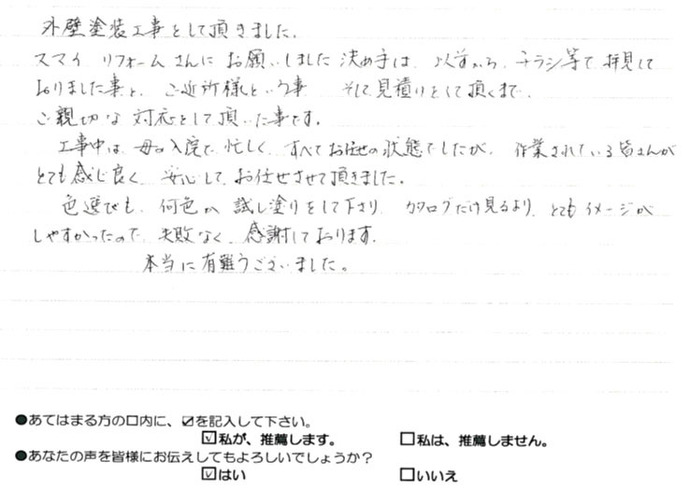 外壁塗装工事をして頂きました。
スマイ リフォームさんに お願いしました 決め手は、以前から、チラシ等で 拝見して
おりました事と、ご近所様という事 そして見積りをして頂くまで、
ご親切な 対応をして頂いた事です。
工事中は 母の入院で 忙しく、すべてお任せの状態でしたが、作業されている皆さんが
とても感じ良く、安心して お任せさせて頂きました。
色選びも、何色か 試し塗りをして下さり、カタログだけ見るより、とても イメージが
しやすかったので、失敗なく 感謝しております。
本当に有難うございました。
●あてはまる方の口内に、☑を記入して下さい。
☑私が、推薦します。 □私は、推薦しません。
●あなたの声を皆様にお伝えしてもよろしいでしょうか？
☑はい □いいえ